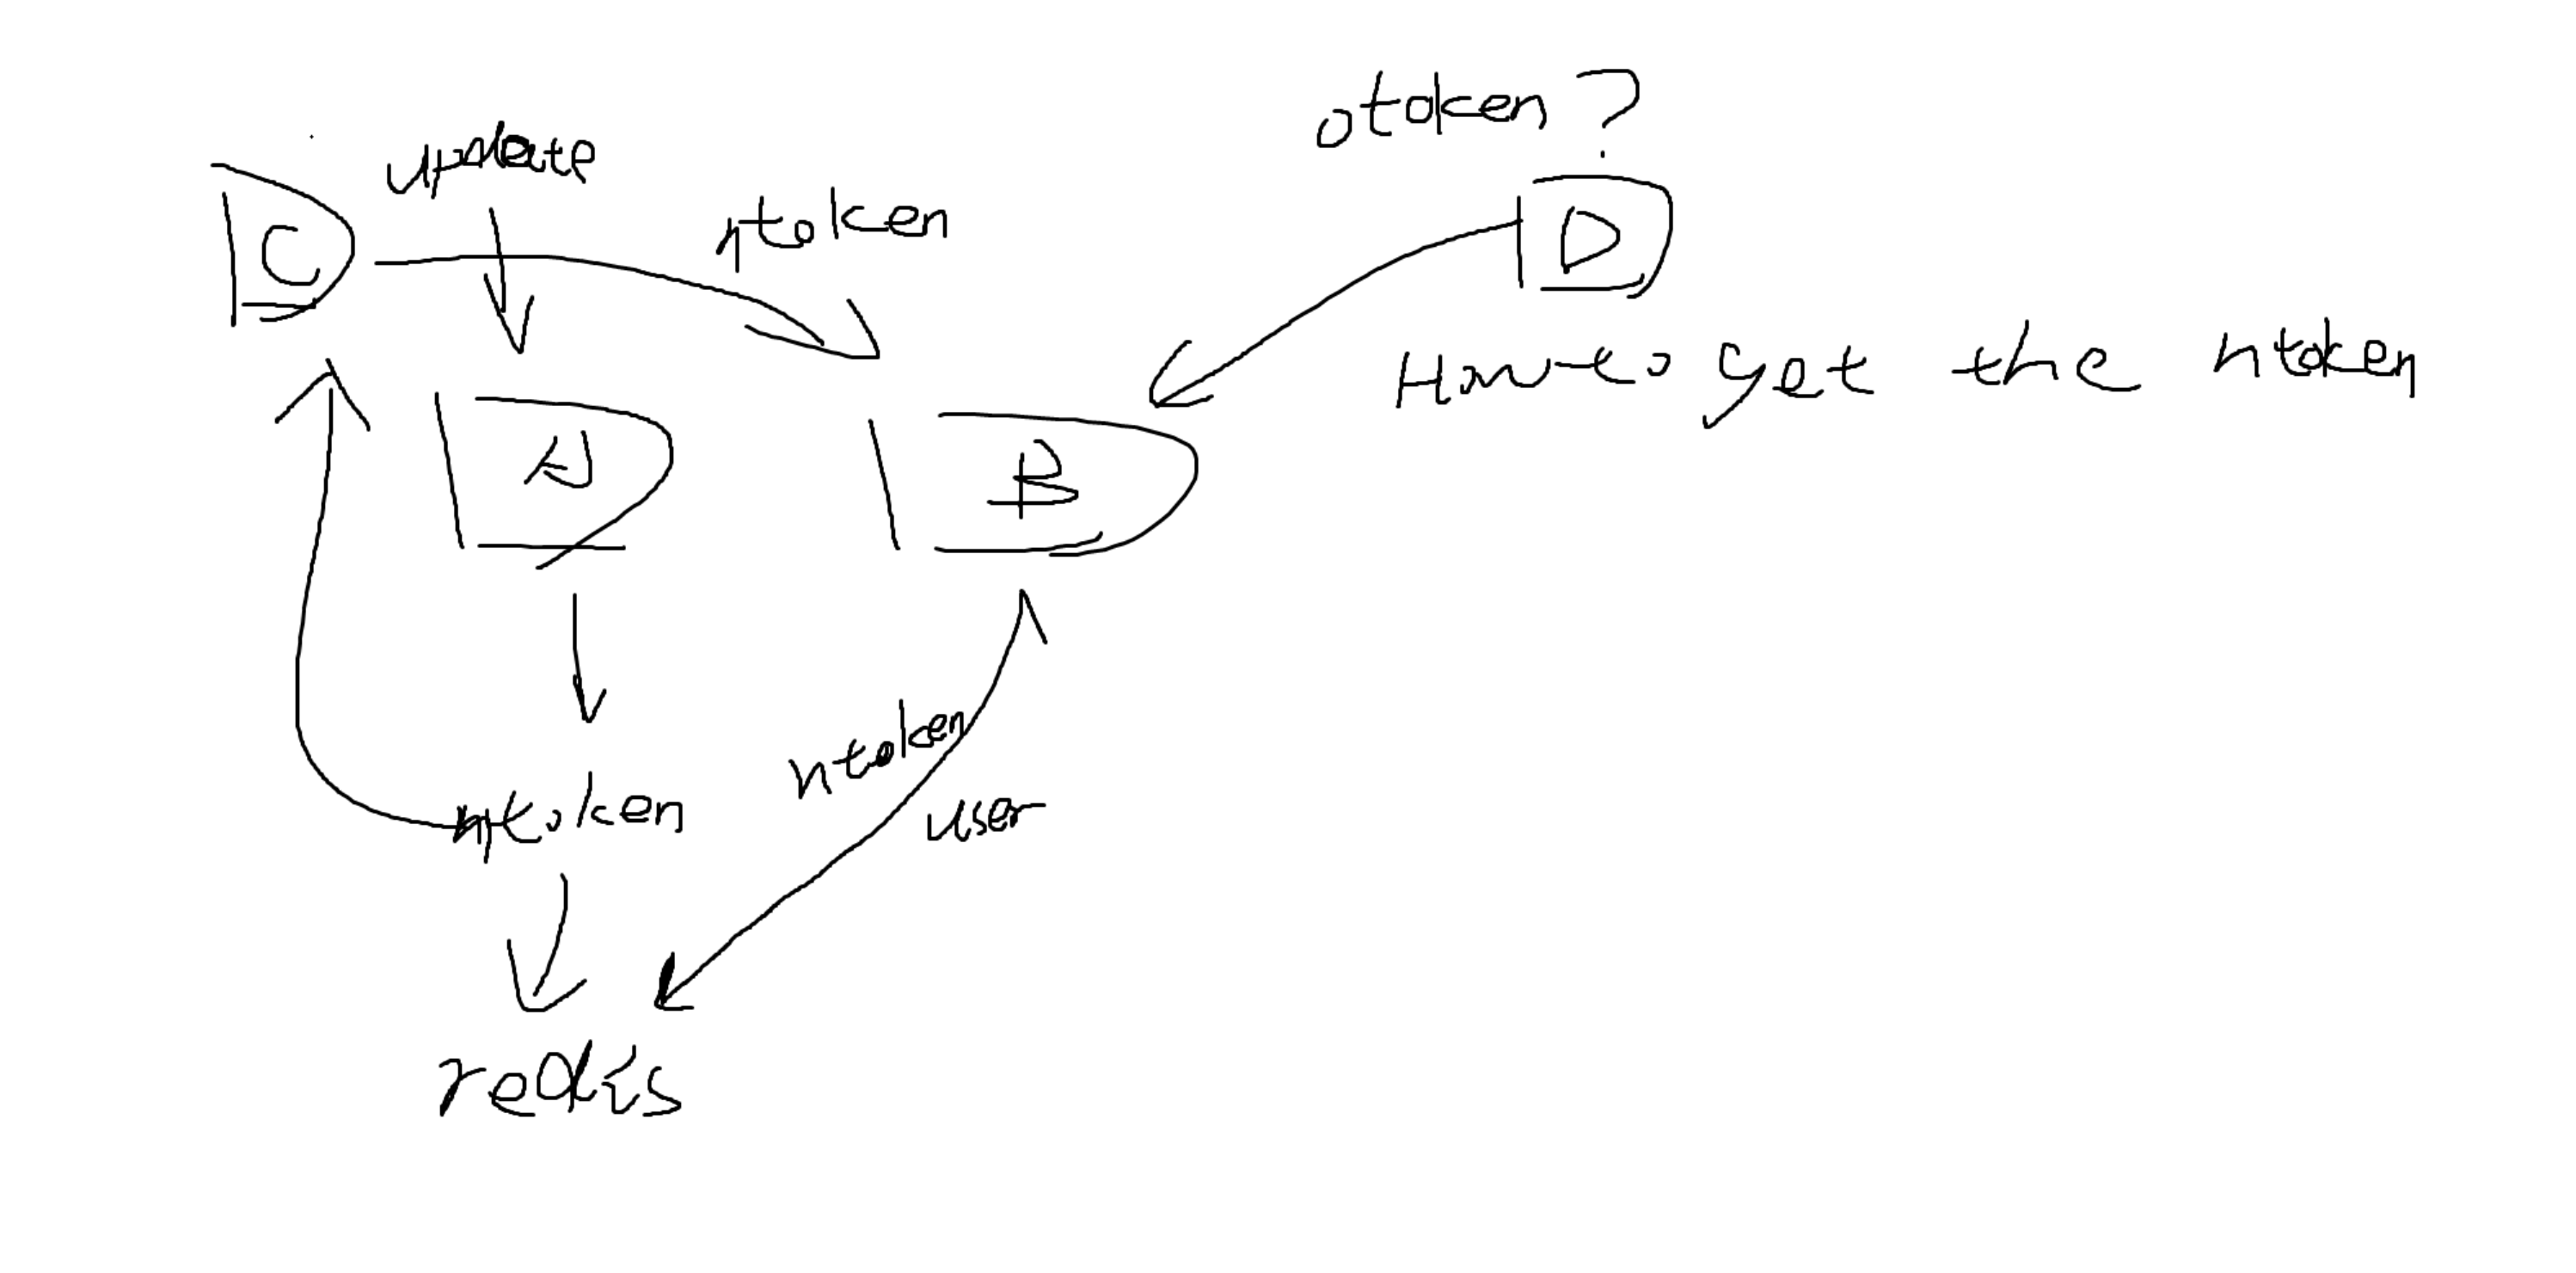 otoken?
update
ntoken
C
D
How to get the ntoken
A
B
ntoken
user
ntoken
redis